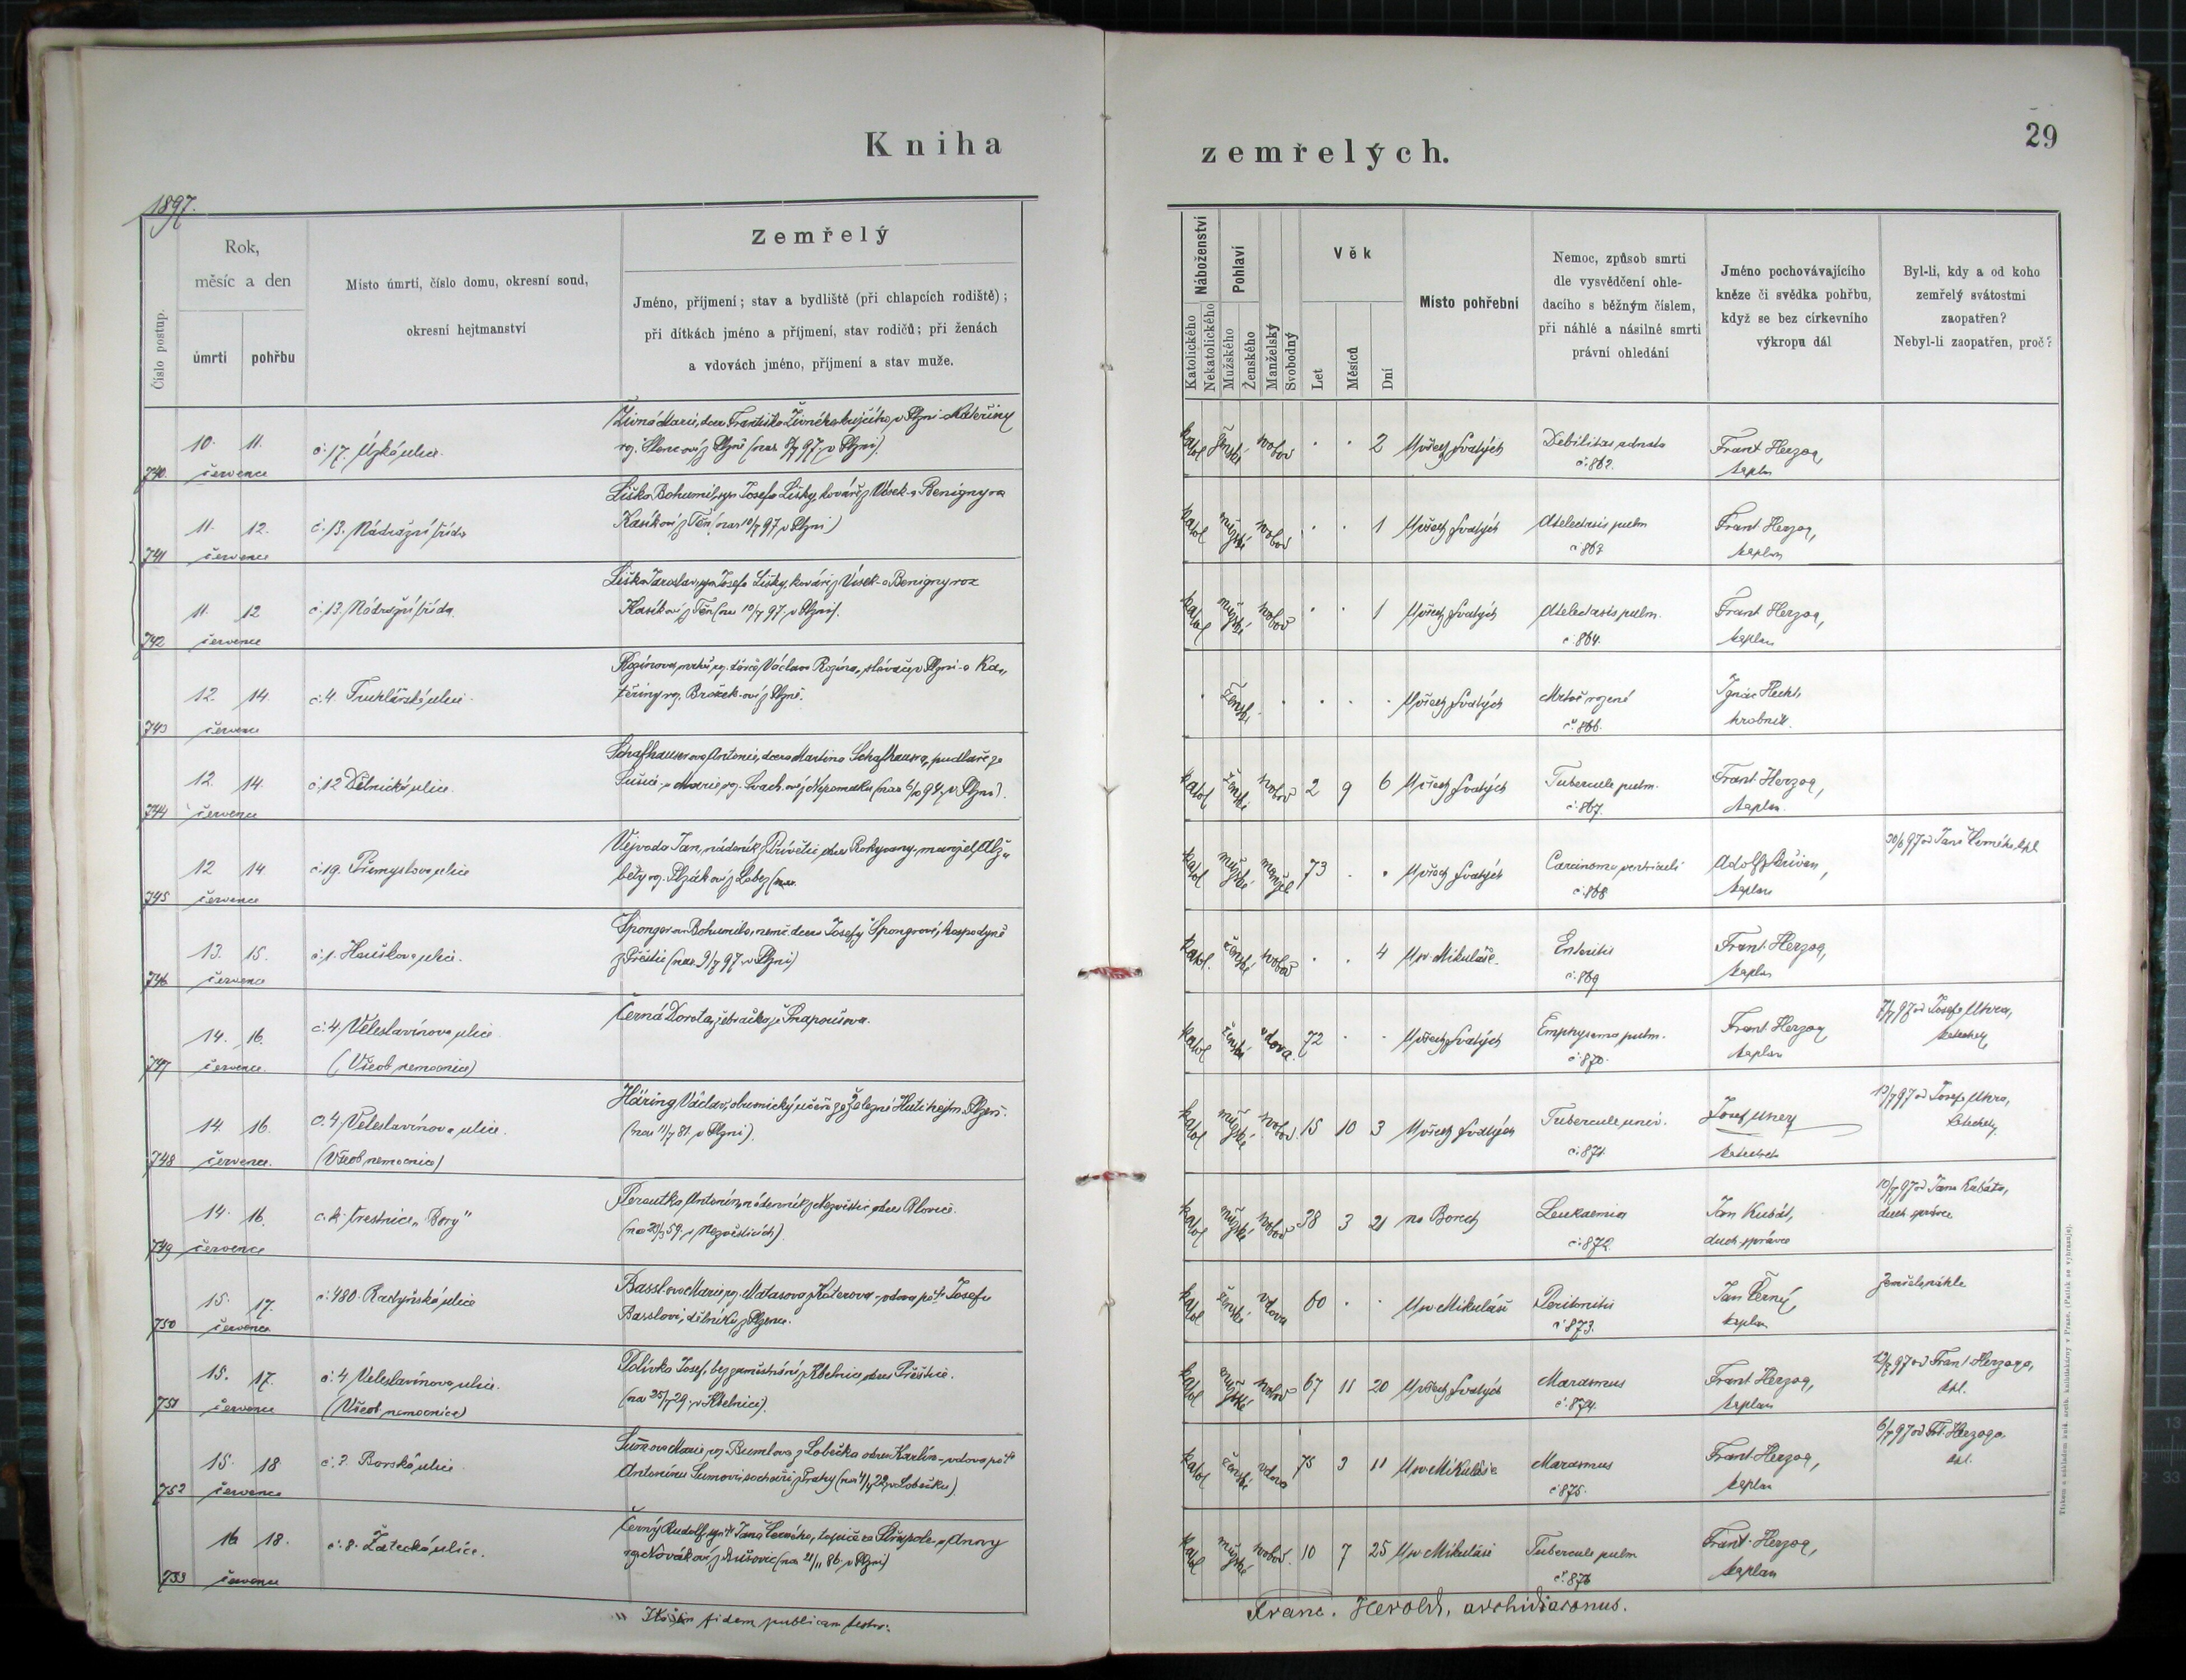 Kniha
zemřelých.
29
1897.
Číslo postup.
Rok,
měsíc a den
úmrtí
pohřbu
Místo úmrtí, číslo domu, okresní soud,
okresní hejtmanství
Zemřelý
Jméno, příjmení; stav a bydliště (při chlapcích rodiště);
při dítkách jméno a příjmení, stav rodičů; při ženách
a vdovách jméno, příjmení a stav muže.
Náboženství
Katolického
Nekatolického
Pohlaví
Mužského
Ženského
Manželský
Svobodný
Věk
Let
Měsíců
Dní
Místo pohřební
Nemoc, způsob smrti
dle vysvědčení ohle-
dacího s běžným číslem,
při náhlé a násilné smrti
právní ohledání
Jméno pochovávajícího
kněze či svědka pohřbu,
když se bez církevního
výkropu dál
Byl-li, kdy a od koho
zemřelý svátostmi
zaopatřen?
Nebyl-li zaopatřen, proč?
740 10. 11. července
č. 17. Úzká ulice.
Živná Marie, dcera Františka Živného v Plzni a Kateřiny
roz. z Plzně (nar. 8/7 97 v Plzni).
katol ženské svobod . . 2 U všech svatých
Debilitas adnata
č. 862.
Frant Herzog,
kaplan
741 11. 12. července
č. 13. Nádražní třída
Liška Bohumil, syn Josefa Lišky, kováře z Vísek a Benigny roz
Kasíkové z Těn (nar 10/7 97 v Plzni)
katol mužské svobod . . 1 U všech svatých
Atelectasis pulm
č. 863
Frant Herzog,
kaplan
742 11. 12 července
č. 13. Nádražní třída.
Liška Jaroslav, syn Josefa Lišky, kováře z Vísek a Benigny roz
Kasíkové z Těn (nar 10/7 97 v Plzni).
katol mužské svobod . . 1 U všech svatých
Atelectasis pulm.
č. 864.
Frant Herzog,
kaplan
743 12. 14. července
č. 4 Truhlářská ulice.
Rozínova, mrtvě roz. dcera Václava Rozína, sládka v Plzni a Ka-
teřiny roz. Brožek-ové z Plzně.
ženské . . . U všech svatých
Mrtvě rozené
č. 866.
Ignác Hecht,
hrobník.
744 12. 14. července
č. 12 Dělnická ulice.
Schafhauserova Antonie, dcera Martina Schafhausra, pudlaře ze
Sušice a Marie roz. z Nepomuku (nar 6/10 94 v Plzni).
katol ženské svobod 2 9 6 U všech svatých
Tubercule pulm.
č. 867.
Frant. Herzog,
kaplan.
745 12 14 července
č. 19. Přemyslova ulice
Vejvoda Jan, nádeník z Přívětic okres Rokycany, manžel Alž-
běty roz. z Lobez
katol mužské manžel 73 . . U všech svatých
Carcinoma ventriculi
č. 868
Adolf
kaplan
30/6 97 od Jana Černého kpl
746 13. 15. července
č. 1. Houškova ulice.
Špongrova Bohumila, nemž. dcera Josefy Špongrové, hospodyně
z Přeštic (nar. 9/7 97 v Plzni)
katol. ženské svobod . . 4 U sv Mikuláše
Enteritis
č. 869
Frant. Herzog,
kaplan
747 14. 16. července.
č. 4 Veleslavínova ulice
(Všeob nemocnice)
Černá Dorota, žebračka ze Snopoušova.
katol ženské vdova. 72 . . U všech svatých
Emphysema pulm.
č. 870.
Frant. Herzog
kaplan
7/7 97 od Josefa Uhra,
katechety
748 14. 16. července.
č. 4 Veleslavínova ulice.
(Všeob nemocnice)
Häring Václav, učeň ze Železné Huti hejtm. Plzeň.
(nar 11/9 81. v Plzni).
katol mužské svobod. 15 10 3 U všech svatých
Tubercule univ.
č. 871.
Josef Uher
katecheta
13/7 97 od Josefa Uhra,
katechety.
749 14. 16. července
c. k. trestnice „Bory"
Peroutka Antonín, nádenník z Nezvěstic okres Blovice.
(nar 23/3 59. v Nezvěsticích).
katol mužské svobod 38 3 21 na Borech
Leukaemia
č. 872.
Jan Kubát,
duch. správce
10/7 97 od Jana Kubáta,
duch. správce
750 15. 17. července
č. 480. Radyňská ulice
Basslova Marie roz. Matasova z Koterova - vdova po † Josefu
Basslovi, dělníku z Plzence.
katol ženské vdova 60 . . U sv Mikuláše
Peritonitis
č. 873.
Jan Černý,
kaplan
Zemřela náhle
751 15. 17. července
č. 4 Veleslavínova ulice.
(Všeob. nemocnice)
Polívka Josef, bez zaměstnání z Kbelnice, okres Přeštice.
(nar 25/7 29. v Kbelnici).
katol mužské svobod 67 11 20 U všech svatých
Marasmus
č. 874.
Frant Herzog,
kaplan
12/7 97 od Frant Herzoga,
kpl.
752 15. 18 července
č. 2. Borská ulice
Šumova Marie roz. Rumlova z Lobečka okres Karlín - vdova po †
Antonínu Šumovi, sochaři z Prahy (nar 4/4 22 v Lobečku).
katol ženské vdova 75 3 11 U sv Mikuláše
Marasmus
č 875.
Frant Herzog,
kaplan
6/7 97 od Fr. Herzoga
kpl.
753 16 18. července
č. 8. Žatecká ulice.
Černý Rudolf, syn † Jana Černého, topiče a Anny
roz. Novákové z (nar 21/11 86. v Plzni)
katol mužské svobod. 10 7 25 U sv Mikuláše
Tubercule pulm
č. 876
Frant. Herzog,
kaplan
fidem publicam testor:
Franc. Herold, archidiaconus.